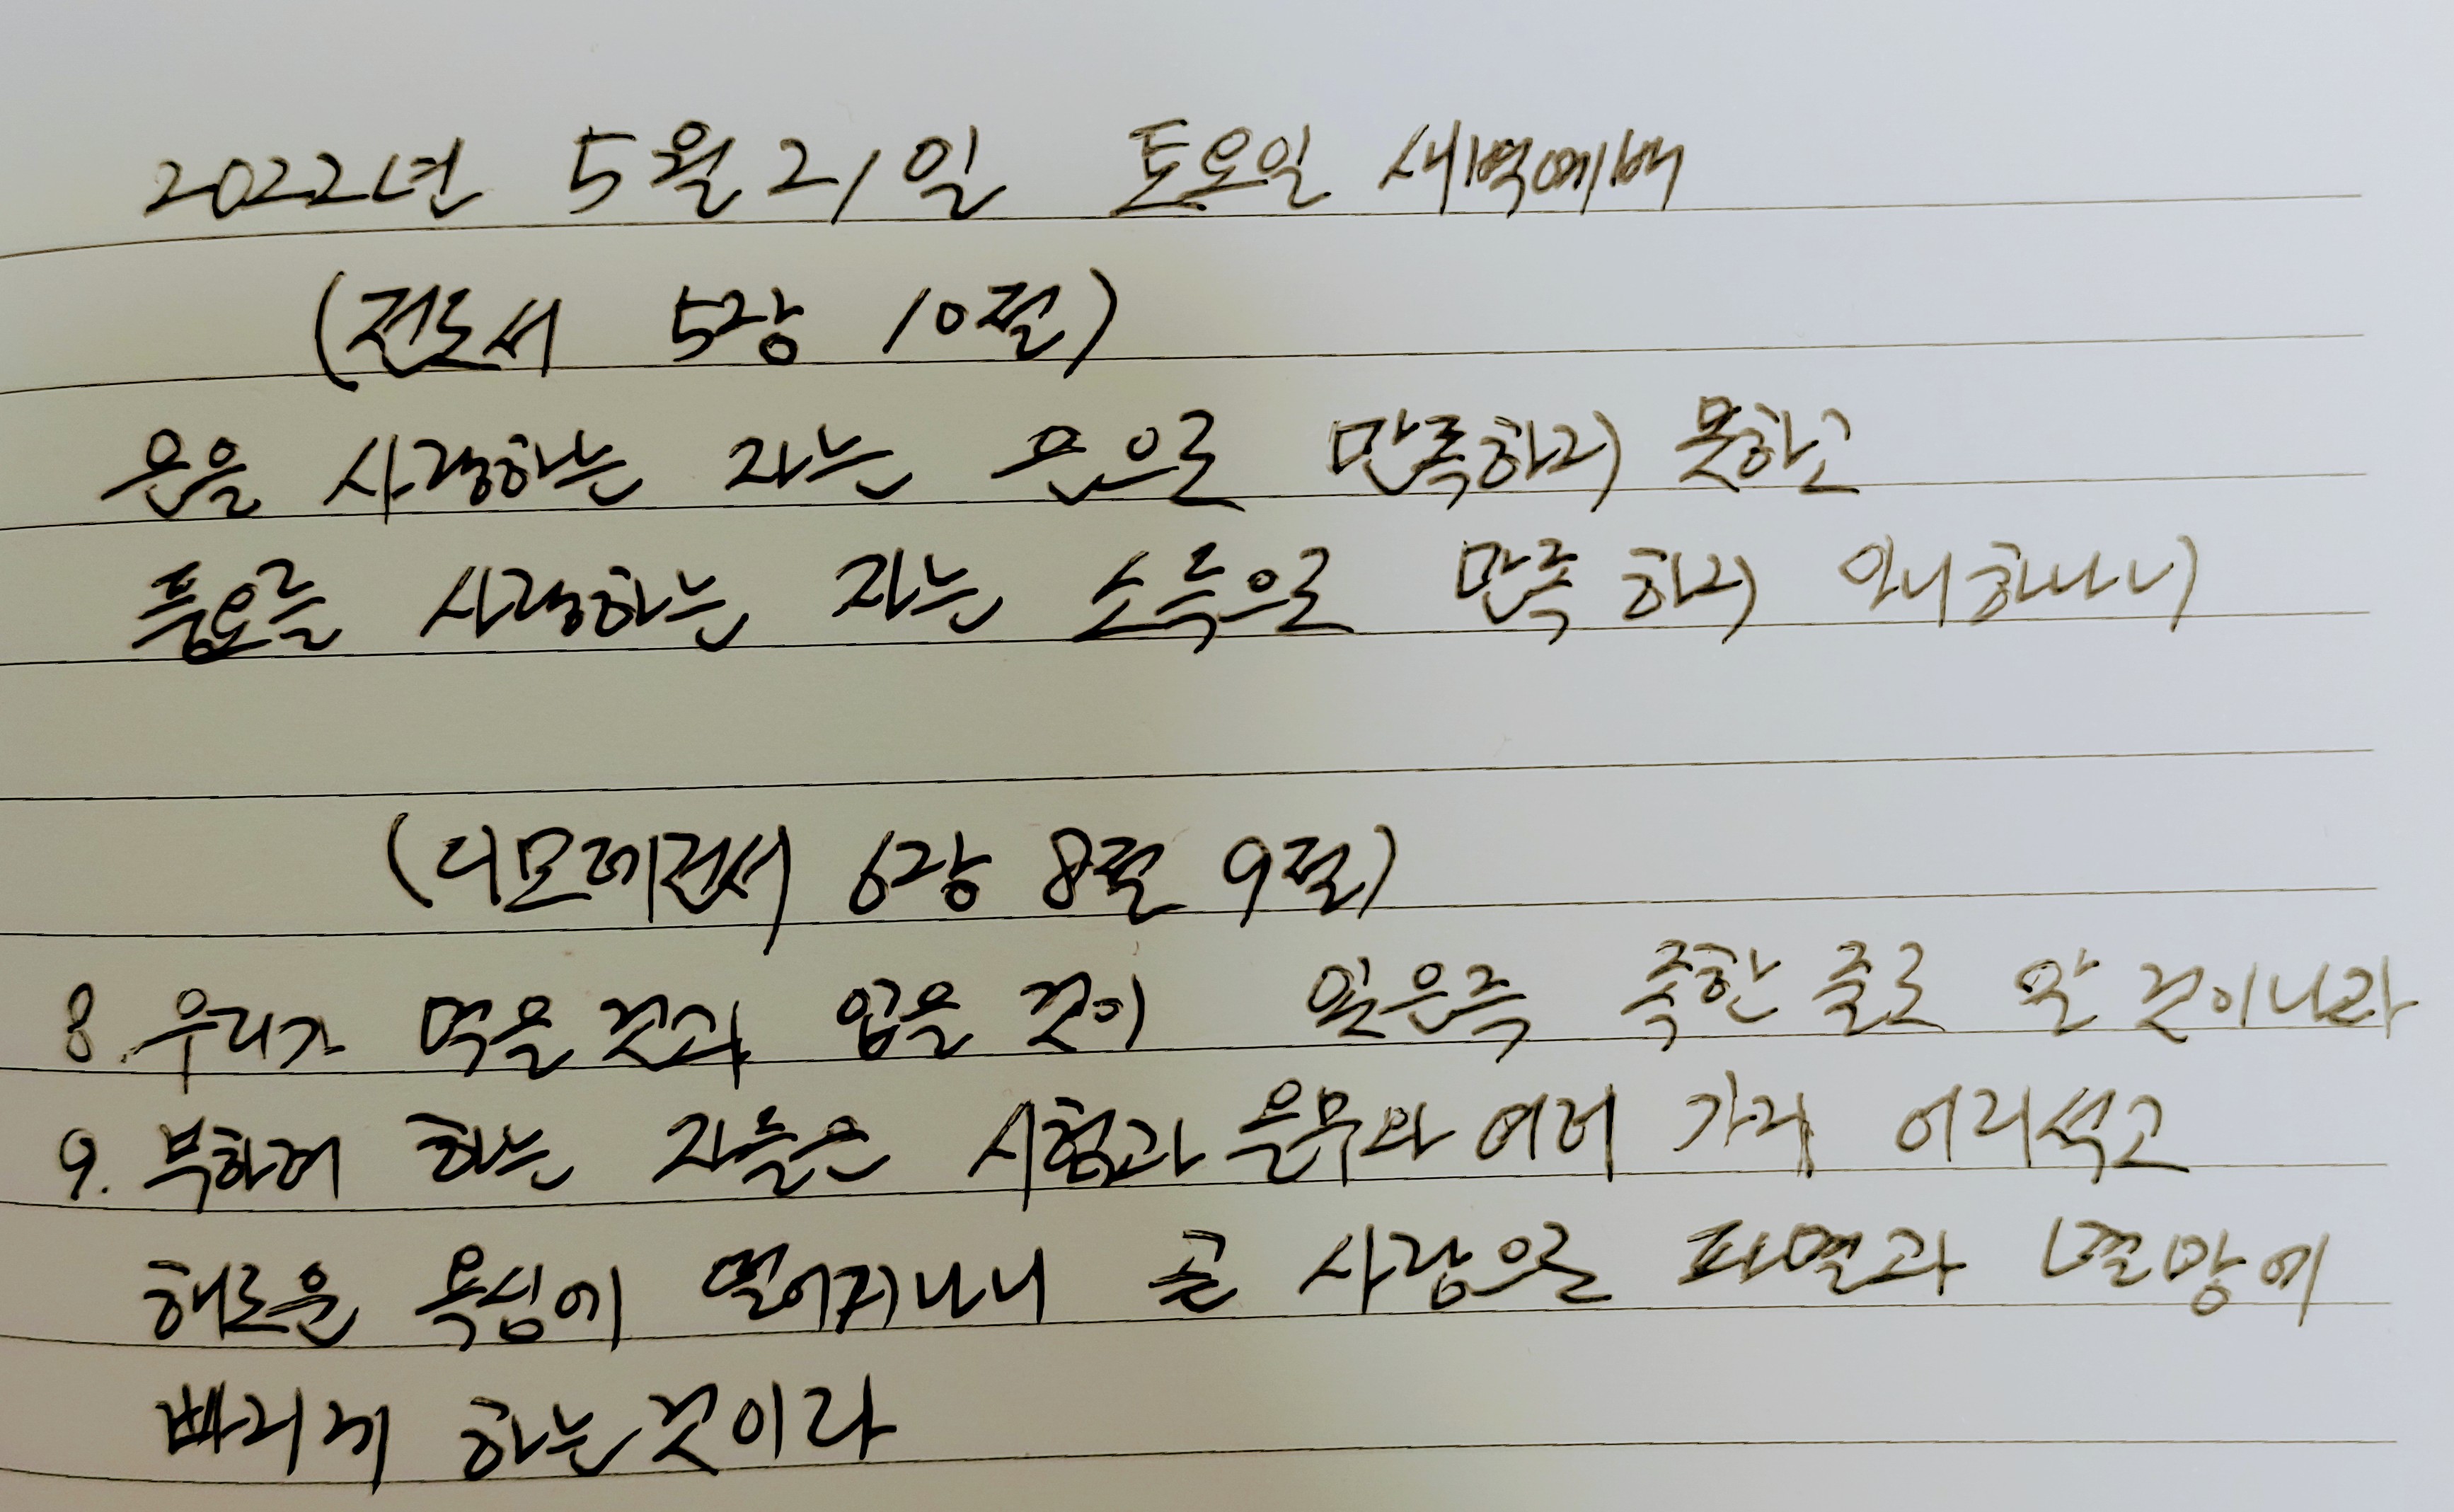 2022년 5월 21일 토요일 새벽예배
(전도서 5장 10절)
은을 사랑하는 자는 은으로 만족하지 못하고
풍요를 사랑하는 자는 소득으로 만족 하지 아니하나니
(디모데전서 6장 8절 9절)
8. 우리가 먹을 것과 입을 것이 있은즉 족한 줄로 알 것이니라
9. 부하려 하는 자들은 시험과 올무와 여러 가지 어리석고
해로운 욕심에 떨어지나니 곧 사람으로 파멸과 멸망에
빠지게 하는 것이라